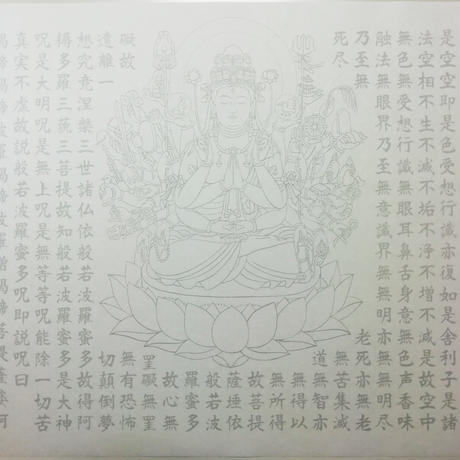 是空空即是色受想行識亦復如是舎利子是諸
法空相不生不滅不垢不浄不増不減是故空中
無色無受想行識無眼耳鼻舌身意無色声香味
触法無眼界乃至無意識界無無明亦無無明尽
乃至無老死亦無老
死尽無苦集滅
道無智亦
無得以
無所得
故菩提
薩埵依
般若波
羅蜜多
故心無
罣礙無罣
礙故無有恐怖
遠離一切顛倒夢
想究竟涅槃三世諸仏依般若波羅蜜多故得阿
耨多羅三藐三菩提故知般若波羅蜜多是大神
呪是大明呪是無上呪是無等等呪能除一切苦
真実不虚故説般若波羅蜜多呪即説呪曰
羯諦羯諦波羅羯諦波羅僧羯諦菩提薩婆訶